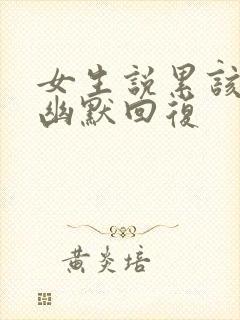 女生説累該
幽默回復
黄炎培